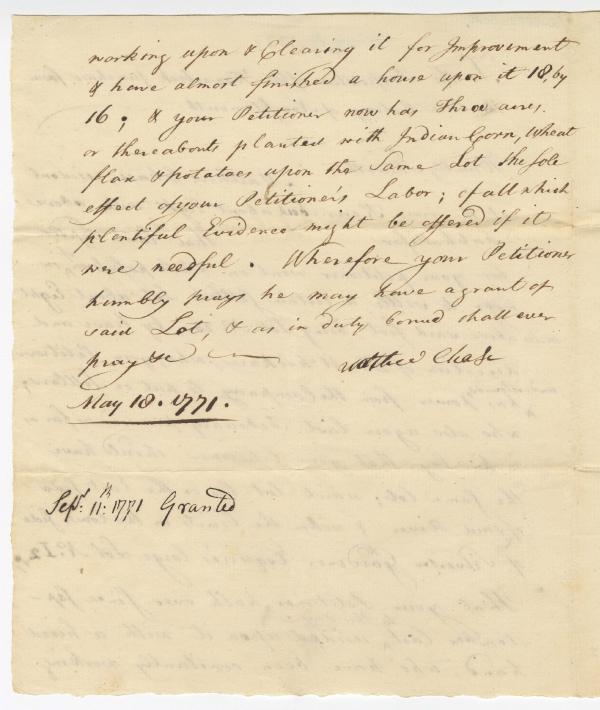 working upon & Clearing it for Improvement
& have almost finished a house upon it 18, by
16; & your Petitioner now has Three acres.
or thereabouts planted with Indian Corn, Wheat
flax & potatoes upon the Same Lot the sole
effect of your Petitioner's Labor; of all which
plentiful Evidence might be offered if it
were needful. Wherefore your Petitioner
humbly prays he may have a grant of
said Lot, & as in duty bound shall ever
pray &c — Chase
May 18. 1771.
Sepr. 11th. 1771 Granted